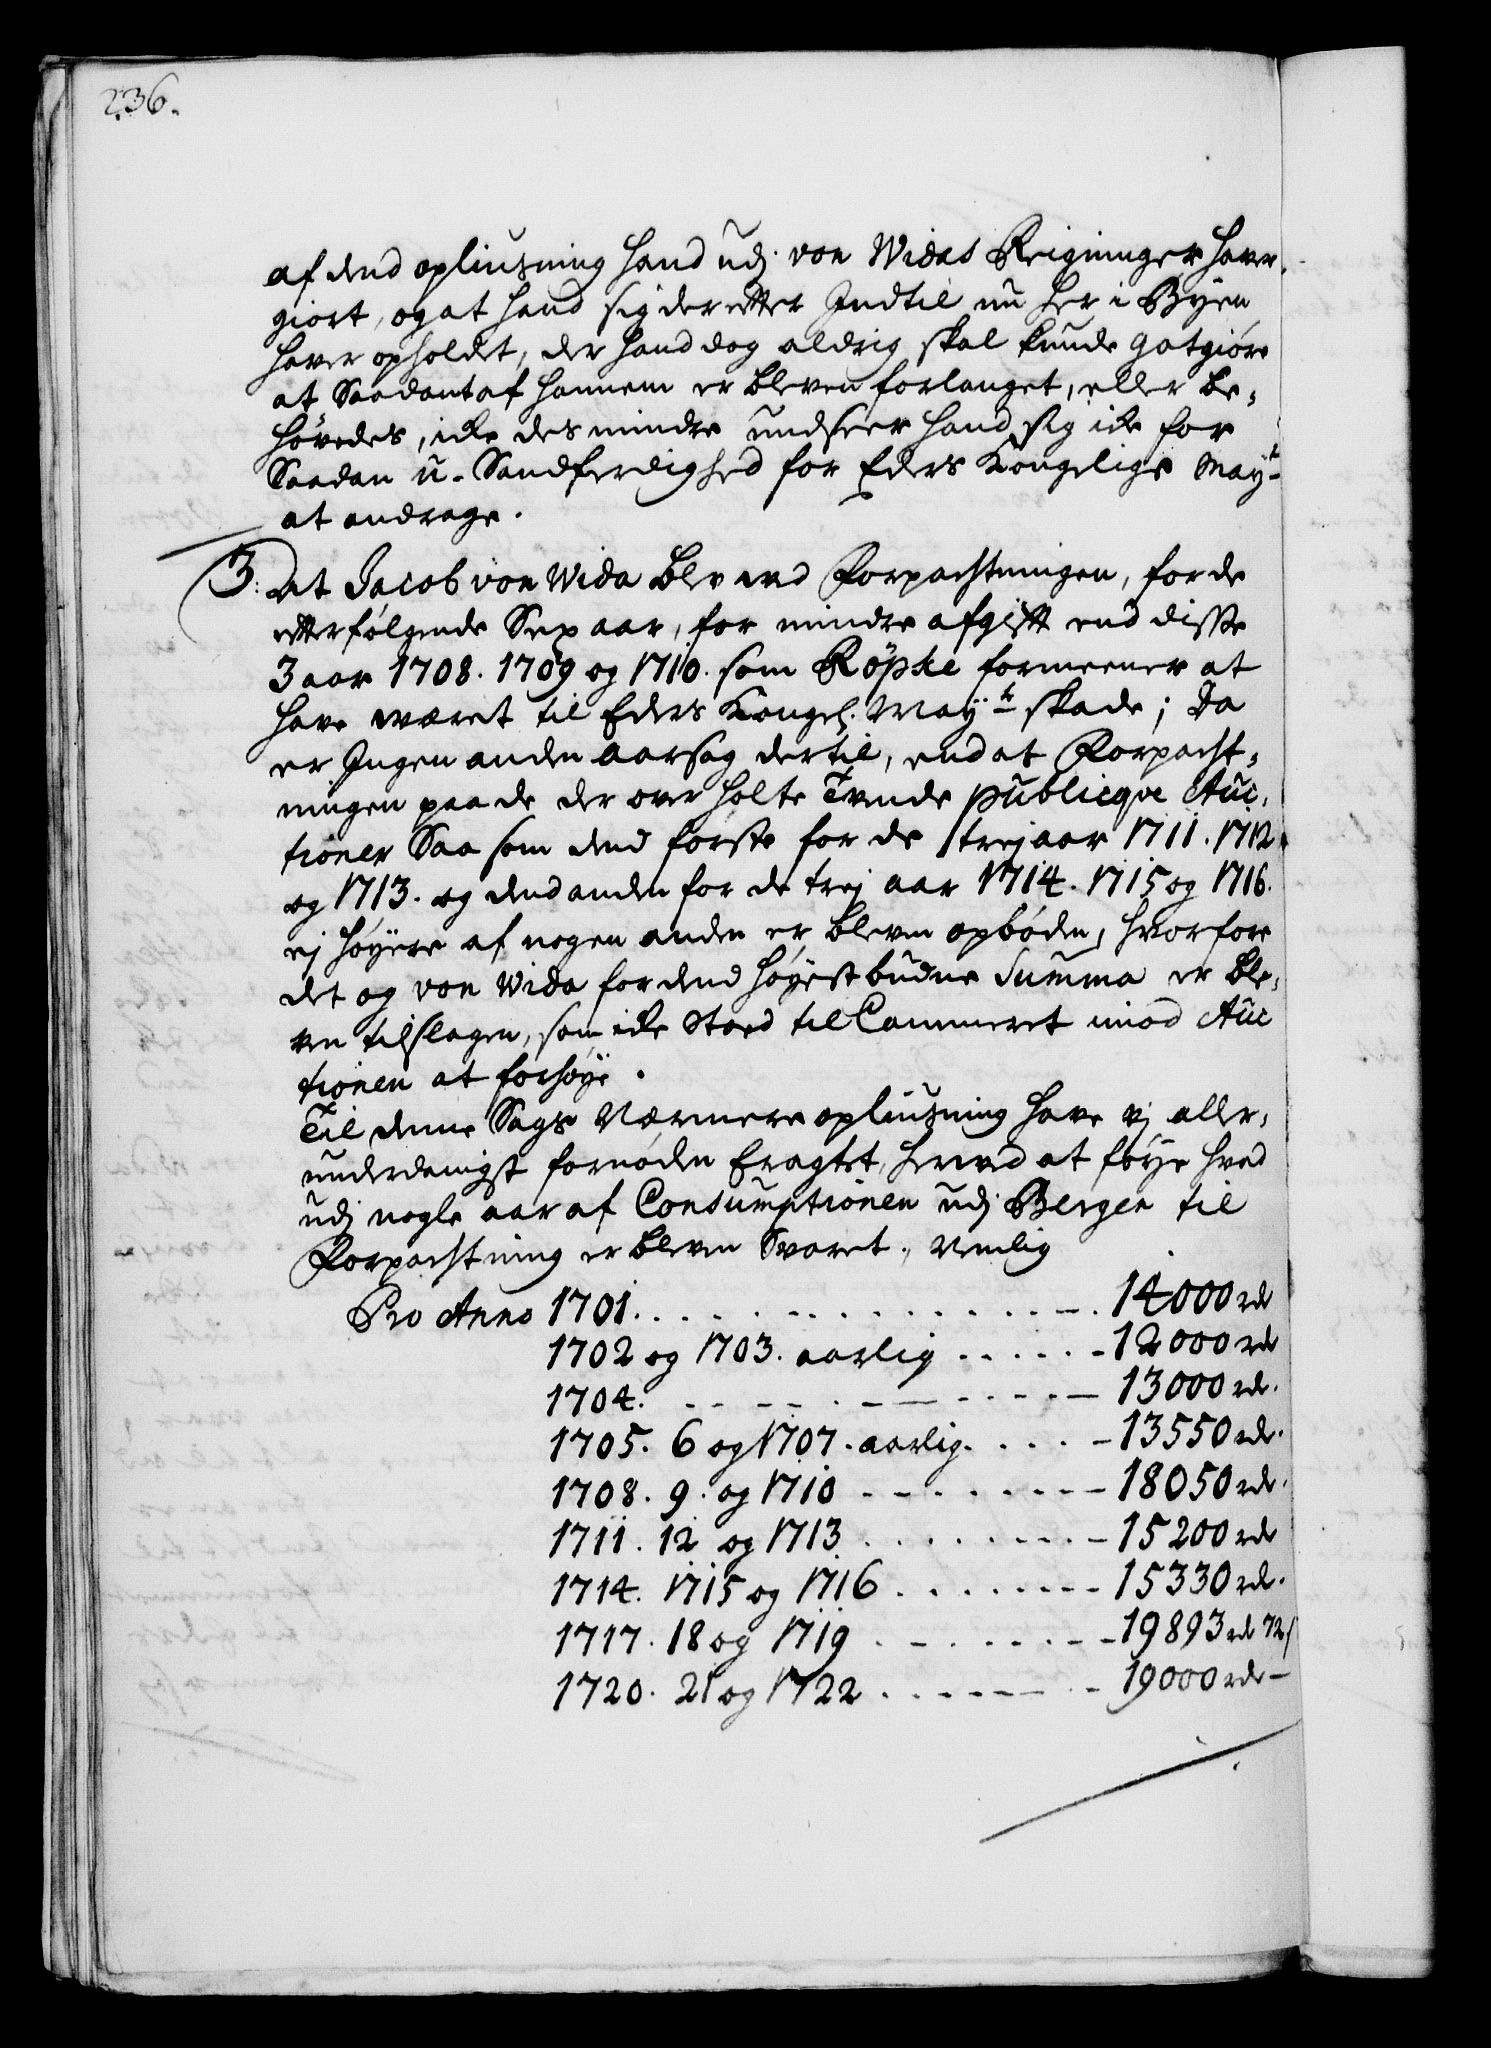 236.
af dend opliusning hand udj von Widas Reigninger haver
giort, og at hand sig der efter Indtil nu her i Byen
haver opholdet, der hand dog aldrig skal kunde gotgiøre
at Saadant af hannem er bleven forlanget, eller be-
høvedes, icke des mindre undseer hand sig icke for
Saadan u-Sandferdighed for Eders Kongelige Mayt
at andrage.
3: At Jacob von Wida blev ved Forpachtningen, for de
efterfølgende Sex aar, for mindre afgifft end disse
3 aar 1708. 1709 og 1710. som Röpke formeener at
have været til Eders Kongel. Mayts skade; Da
er Ingen anden aarsag dertil, end at Forpacht-
ningen paa de der over holte Tvende publicqve Auc-
tioner Saa som dend første for de trej aar 1711. 1712
og 1713. og dend anden for de trej aar 1714. 1715 og 1716.
ej høyere af nogen anden er bleven opböden, hvorfore
det og von Wida for dend høyestbudne Summa er ble-
ven tilslagen, som icke stoed til Cammeret imod Auc
tionen at forhøye.
Til denne Sags Nærmere opliusning have vj aller-
underdanigst fornøden Eragtet, herved at føye hvad
udj nogle aar af Consumptionen udj Bergen til
Forpachtning er bleven Svaret, Nemlig
Pro Anno 1701. . . . . . . . . . . . 14000 rde
1702 og 1703. aarlig . . . . . - 12000 rde
1704. - - - - - - - - - 13000 rde.
1705. 6 og 1707. aarlig. . . . . - 13550 rde.
1708. 9. og 1710 - - - - - - - 18050 rde.
1711. 12 og 1713 . . . . . . . - 15200 rde
1714. 1715 og 1716 . . . . . - - - 15330 rde.
1717. 18 og 1719 . - . . . . - - 19893 rde 72 s
1720. 21 og 1722 . . . - - - - 19000 rde -